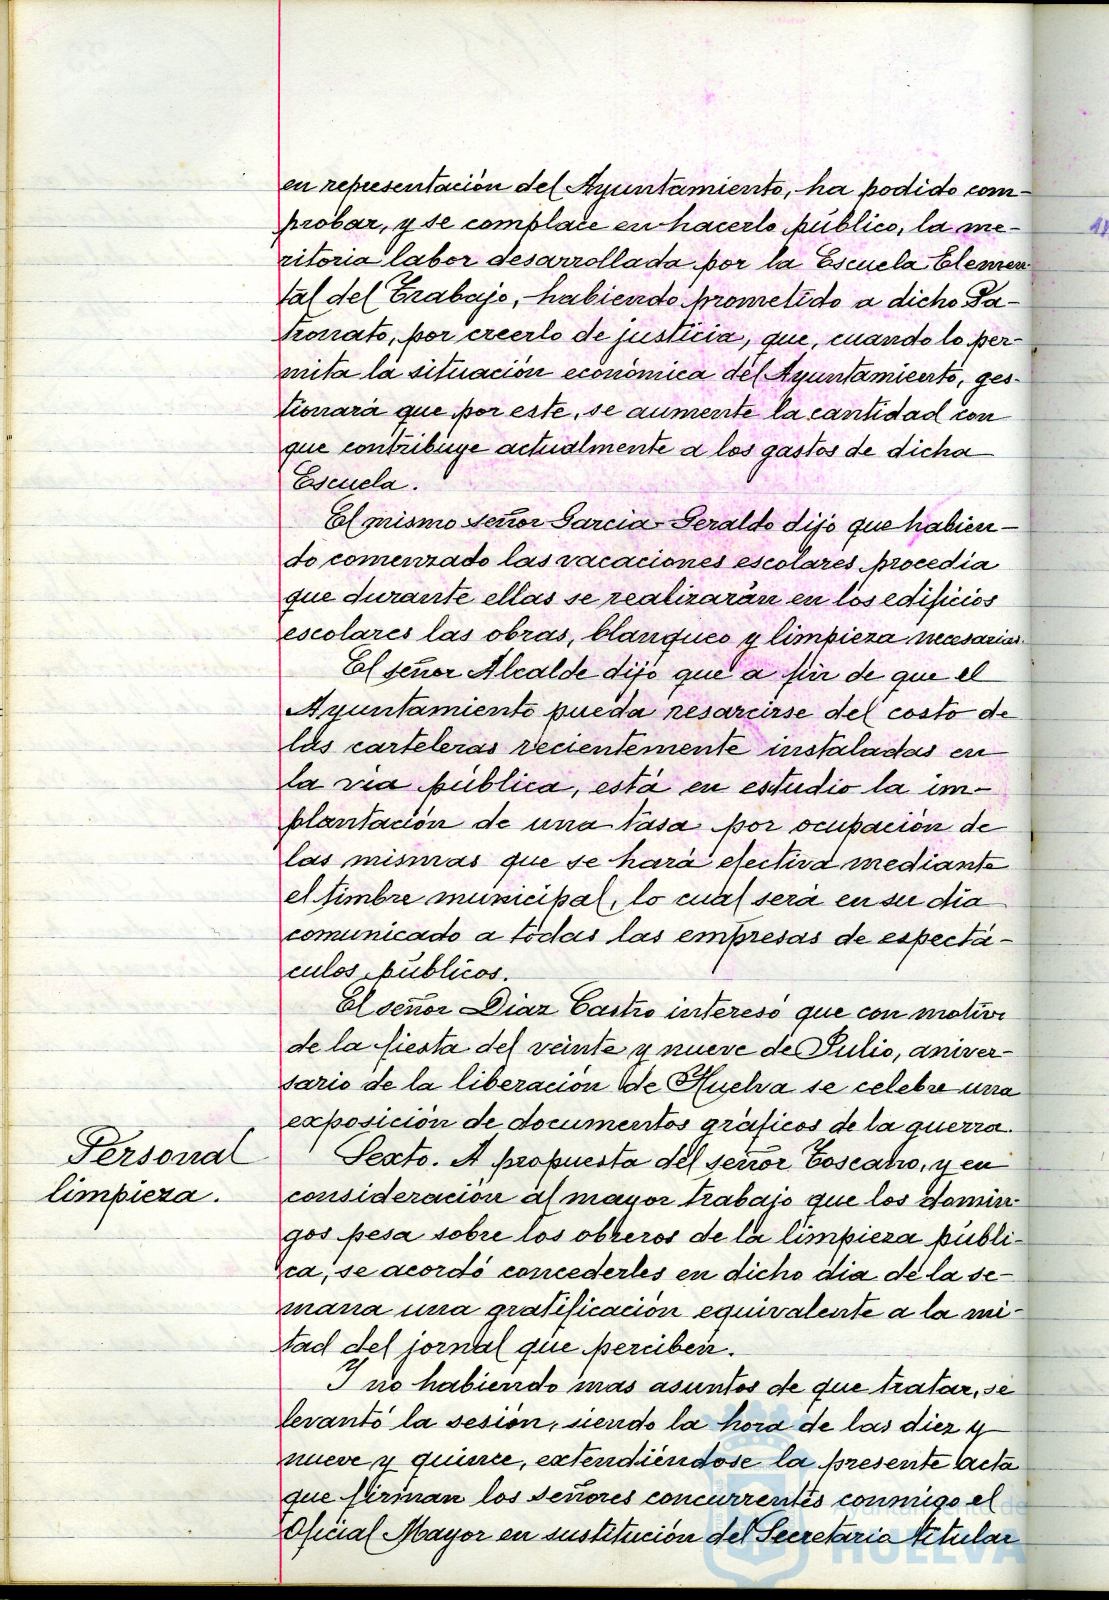 en representación del Ayuntamiento, ha podido com-
probar, y se complace en hacerlo público, la me-
ritoria labor desarrollada por la Escuela Elemen-
tal del Trabajo, habiendo prometido a dicho Pa-
tronato, por creerlo de justicia, que, cuando lo per-
mita la situación económica del Ayuntamiento, ges-
tionará que por este, se aumente la cantidad con
que contribuye actualmente a los gastos de dicha
Escuela.
El mismo señor Garcia-Geraldo dijo que habien-
do comenzado las vacaciones escolares procedia
que durante ellas se realizarán en los edificios
escolares las obras, blanqueo y limpieza necesarias.
El señor Alcalde dijo que a fin de que el
Ayuntamiento pueda resarcirse del costo de
las carteleras recientemente instaladas en
la via pública, está en estudio la im-
plantación de una tasa por ocupación de
las mismas que se hará efectiva mediante
el timbre municipal, lo cual será en su dia
comunicado a todas las empresas de espectá-
culos públicos.
El señor Diaz Castro interesó que con motivo
de la fiesta del veinte y nueve de Julio, aniver-
sario de la liberación de Huelva se celebre una
exposición de documentos gráficos de la guerra.
Personal
limpieza.
Sexto. A propuesta del señor Toscano, y en
consideración al mayor trabajo que los domin-
gos pesa sobre los obreros de la limpieza públi-
ca, se acordó concederles en dicho dia de la se-
mana una gratificación equivalente a la mi-
tad del jornal que perciben.
Y no habiendo mas asuntos de que tratar, se
levantó la sesión, siendo la hora de las diez y
nueve y quince, extendiéndose la presente acta
que firman los señores concurrentes conmigo el
Oficial Mayor en sustitución del Secretario titular
Ayuntamiento de
HUELVA